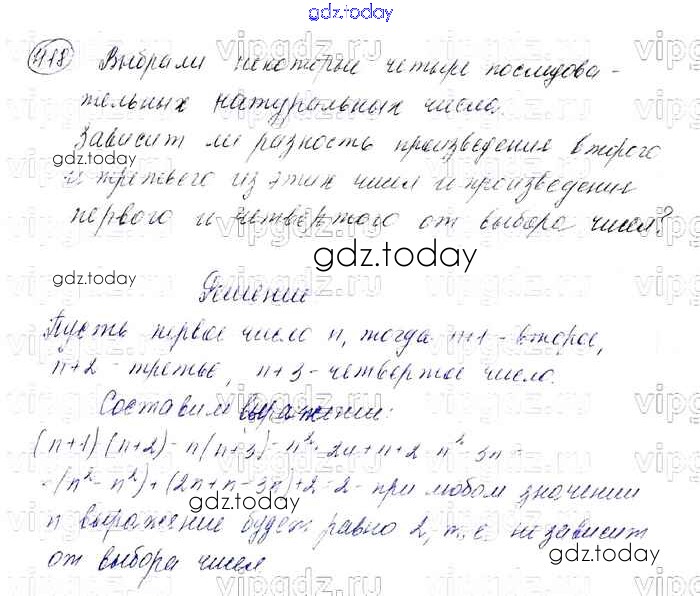 gdz.today
418 Выбрали некоторые четыре последова-
тельных натуральных числа.
Зависит ли разность произведения второго
gdz.today
и третьего из этих чисел и произведения
первого и четвертого от выбора чисел?
gdz.today
gdz.today
Решение
Пусть первое число n, тогда n+1 - второе,
n+2 - третье, n+3 - четвертое число.
Составим выражение:
(n+1)(n+2) - n(n+3) = n² + 2n + n + 2 - n² - 3n =
= (n² - n²) + (2n + n - 3n) + 2 = 2 - при любом значении
gdz.today
n выражение будет равно 2, т.е. не зависит
gdz.today
от выбора чисел